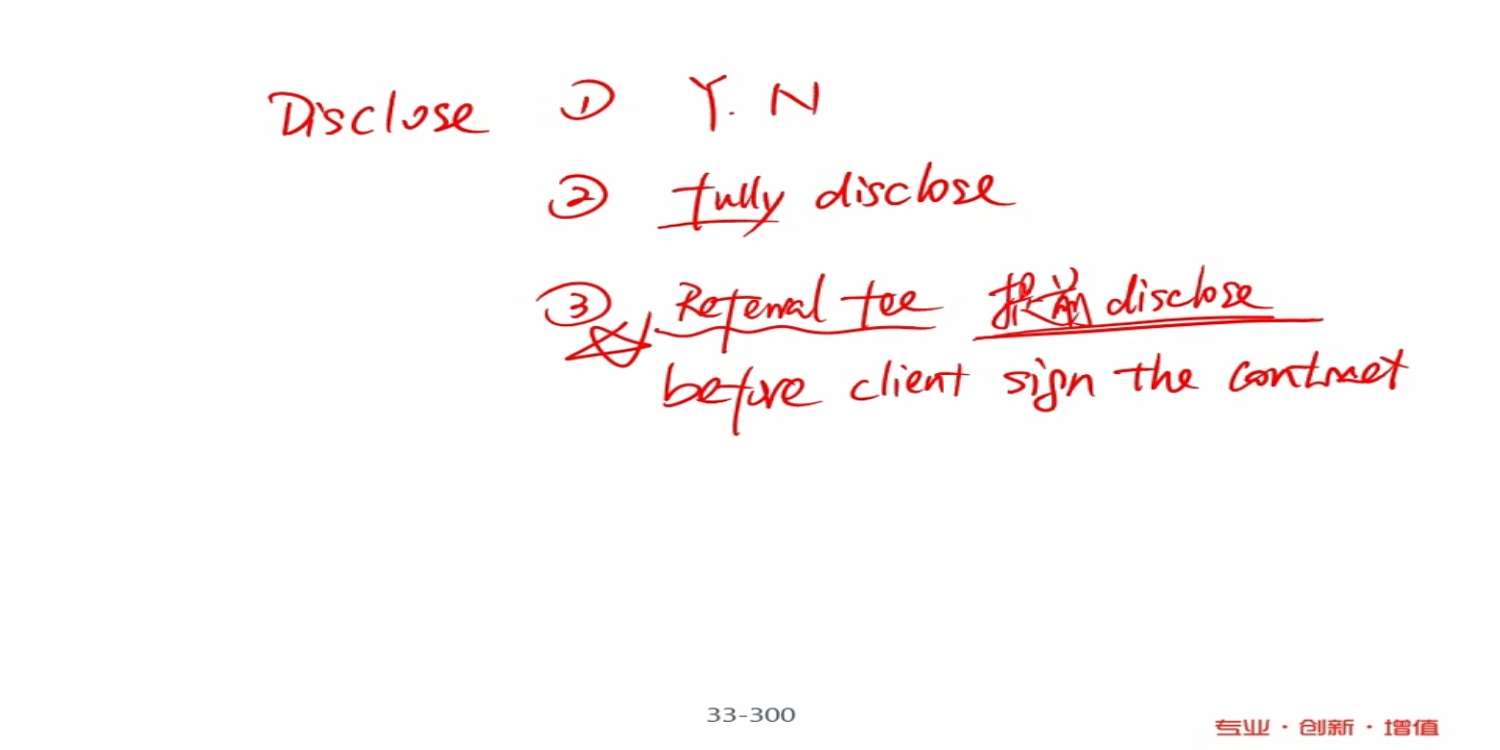 Disclose ① Y. N
② fully disclose
③ Referral fee 提前 disclose
before client sign the contract
33-300
专业·创新·增值